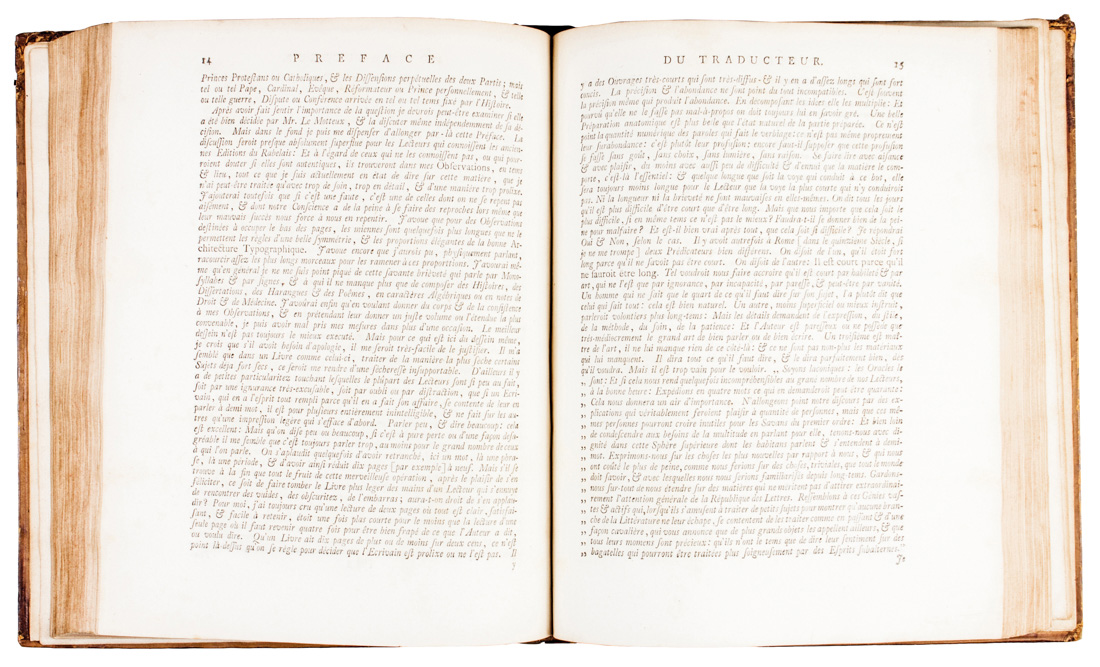 14 PREFACE
Princes Protestans ou Catholiques, & les Dissensions perpétuelles des deux Partis; mais
tel ou tel Pape, Cardinal, Evêque, Réformateur ou Prince personnellement, & telle
ou telle guerre, Dispute ou Conference arrivée en tel ou tel tems fixé par l'Histoire.
Après avoir fait sentir l'importance de la question je devrais peut-être examiner si elle
a été bien décidée par Mr. Le Motteux, & la discuter même indépendamment de sa dé-
cision. Mais dans le fond je puis me dispenser d'allonger par-là cette Préface. La
discussion seroit presque absolument superflue pour les Lecteurs qui connoissent les ancien-
nes Editions du Rabelais: Et à l'égard de ceux qui ne les connoissent pas, ou qui pour-
roient douter si elles sont autentiques, ils trouveront dans mes Observations, en tems
& lieu, tout ce que je suis actuellement en état de dire sur cette matière, que je
n'ai peut-être traitée qu'avec trop de soin, trop en détail, & d'une manière trop prolixe.
J'ajouterai toutefois que si c'est une faute, c'est une de celles dont on ne se repent pas
aisément, & dont notre Conscience a de la peine à se faire des reproches lors même que
leur mauvais succès nous force à nous en repentir. J'avoue que pour des Observations
destinées à occuper le bas des pages, les miennes sont quelquefois plus longues que ne le
permettent les règles d'une belle symmetrie, & les proportions élégantes de la bonne Ar-
chitecture Typographique. J'avoue encore que j'aurois pu, physiquement parlant,
racourcir assez les plus longs morceaux pour les ramener à ces proportions. J'avourai mê-
me qu'en général je ne me suis point piqué de cette savante brieveté qui parle par Mono-
syllabes & par signes, & à qui il ne manque plus que de composer des Histoires, des
Dissertations, des Harangues & des Poëmes, en caractères Algébriques ou en notes de
Droit & de Médecine. J'avourai enfin qu'en voulant donner du corps & de la consistence
à mes Observations, & en prétendant leur donner un juste volume ou l'étendue la plus
convenable, je puis avoir mal pris mes mesures dans plus d'une occasion. Le meilleur
dessein n'est pas toujours le mieux executé. Mais pour ce qui est ici du dessein même,
je crois que s'il avoit besoin d'apologie, il me seroit très-facile de le justifier. Il m'a
semblé que dans un Livre comme celui-ci, traiter de la manière la plus sèche certains
Sujets déja fort secs, ce seroit me rendre d'une sécheresse insupportable. D'ailleurs il y
a de petites particularitez touchant lesquelles la plûpart des Lecteurs sont si peu au fait,
soit par une ignorance très-excusable, soit par oubli ou par distraction, que si un Ecri-
vain, qui en a l'esprit tout rempli parce qu'il en a fait son affaire, se contente de leur en
parler à demi mot, il est pour plusieurs entièrement inintelligible, & ne fait sur les au-
tres qu'une impression légere qui s'efface d'abord. Parler peu, & dire beaucoup! cela
est excellent: Mais qu'on dise peu ou beaucoup, si c'est à pure perte ou d'une façon desa-
gréable il me semble que c'est toujours parler trop, au moins pour le grand nombre de ceux
à qui l'on parle. On s'aplaudit quelquefois d'avoir retranché, ici un mot, là une phra-
se, là une période, & d'avoir ainsi réduit dix pages [par exemple] à neuf. Mais s'il se
trouve à la fin que tout le fruit de cette merveilleuse opération, après le plaisir de s'en
féliciter, ce soit de faire tomber le Livre plus leger des mains d'un Lecteur qui s'ennuye
de rencontrer des vuides, des obscuritez, de l'embarras; aura-t-on droit de s'en applau-
dir? Pour moi, j'ai toujours cru qu'une lecture de deux pages où tout est clair, satisfai-
sant, & facile à retenir, étoit une fois plus courte pour le moins que la lecture d'une
seule page où il faut revenir quatre fois pour être bien frapé de ce que l'Auteur a dit,
ou voulu dire. Qu'un Livre ait dix pages de plus ou de moins sur deux cens, ce n'est
point là-dessus qu'on se règle pour décider que l'Ecrivain est prolixe ou ne l'est pas. Il
y
DU TRADUCTEUR. 15
y a des Ouvrages très-courts qui sont très-diffus & il y en a d'assez longs qui sont fort
concis. La précision & l'abondance ne sont point du tout incompatibles. C'est souvent
la précision même qui produit l'abondance. En decomposant les idées elle les multiplie: Et
pourvû qu'elle ne le fasse pas mal-à-propos on doit toujours lui en savoir gré. Une belle
Préparation anatomique est plus belle que l'état naturel de la partie preparée. Ce n'est
point la quantité numérique des paroles qui fait le verbiage: ce n'est pas même proprement
leur surabondance: c'est plutôt leur profusion: encore faut-il supposer que cette profusion
se fasse sans goût, sans choix, sans lumière, sans raison. Se faire lire avec aisance
& avec plaisir, du moins avec aussi peu de difficulté & d'ennui que la matière le com-
porte, c'est-là l'essentiel: & quelque longue que soit la voye qui conduit à ce but, elle
sera toujours moins longue pour le Lecteur que la voye la plus courte qui n'y conduiroit
pas. Ni la longueur ni la brieveté ne sont mauvaises en elles-mêmes. On dit tous les jours
qu'il est plus difficile d'être court que d'être long. Mais que nous importe que cela soit le
plus difficile, si en même tems ce n'est pas le mieux? Faudra-t-il se donner bien de la pei-
ne pour malfaire? Et est-il bien vrai après tout, que cela soit si difficile? Je répondrai
Oui & Non, selon le cas. Il y avoit autrefois à Rome [dans le quinzième Siècle, si
je ne me trompe] deux Prédicateurs bien différens. On disoit de l'un, qu'il étoit fort
long parce qu'il ne savoit pas être court. On disoit de l'autre: Il est court parce qu'il
ne sauroit être long. Tel voudroit nous faire accroire qu'il est court par habileté & par
art, qui ne l'est que par ignorance, par incapacité, par paresse, & peut-être par vanité.
Un homme qui ne sait que le quart de ce qu'il faut dire sur son sujet, l'a plutôt dit que
celui qui sait tout: cela est bien naturel. Un autre, moins superficiel ou mieux instruit,
parleroit volontiers plus long-tems: Mais les détails demandent de l'expression, du stile,
de la méthode, du soin, de la patience: Et l'Auteur est paresseux ou ne possède que
très-médiocrement le grand art de bien parler ou de bien écrire. Un troisième est maî-
tre de l'art, il ne lui manque rien de ce côté-là: & ce ne sont pas non-plus les materiaux
qui lui manquent. Il dira tout ce qu'il faut dire, & le dira parfaitement bien, dès
qu'il voudra. Mais il est trop vain pour le vouloir. „ Soyons laconiques: les Oracles le
„ sont: Et si cela nous rend quelquefois incompréhensibles au grand nombre de nos Lecteurs,
„ à la bonne heure: Expedions en quatre mots ce qui en demanderoit peut-être quarante:
„ Cela nous donnera un air d'importance. N'allongeons point notre discours par des ex-
„ plications qui véritablement feroient plaisir à quantité de personnes, mais que ces mê-
„ mes personnes pourront croire inutiles pour les Savans du premier ordre: Et bien loin
„ de condescendre aux besoins de la multitude en parlant pour elle, tenons-nous avec di-
„ gnité dans cette Sphère supérieure dont les habitans parlent & s'entendent à demi-
„ mot. Exprimons-nous sur les choses les plus nouvelles par rapport à nous, & qui nous
„ ont coûté le plus de peine, comme nous ferions sur des choses, triviales, que tout le monde
„ doit savoir, & avec lesquelles nous nous serions familiarisés depuis long tems. Gardons-
„ nous sur-tout de nous étendre sur des matières qui ne méritent pas d'attirer extraordinai-
„ rement l'attention générale de la République des Lettres. Ressemblons à ces Génies vas-
„ tes & actifs qui, lorsqu'ils s'amusent à traiter de petits sujets pour montrer qu'aucune bran-
„ che de la Littérature ne leur échape, se contentent de les traiter comme en passant & d'une
„ façon cavalière, qui vous annonce que de plus grands objets les appellent ailleurs, & que
„ tous leurs momens sont précieux: qu'ils n'ont le tems que de dire leur sentiment sur des
„ bagatelles qui pourront être traitées plus soigneusement par des Esprits subalternes."
Je